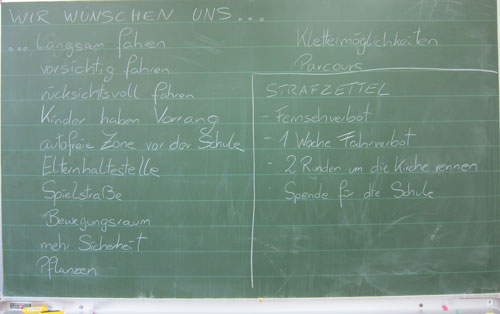 WIR WÜNSCHEN UNS...
... langsam fahren
vorsichtig fahren
rücksichtsvoll fahren
Kinder haben Vorrang
autofreie Zone vor der Schule
Elternhaltestelle
Spielstraße
Bewegungsraum
mehr Sicherheit
Pflanzen
Klettermöglichkeiten
Parcours
STRAFZETTEL
- Fernsehverbot
- 1 Woche Fahrverbot
- 2 Runden um die Kirche rennen
- Spende für die Schule